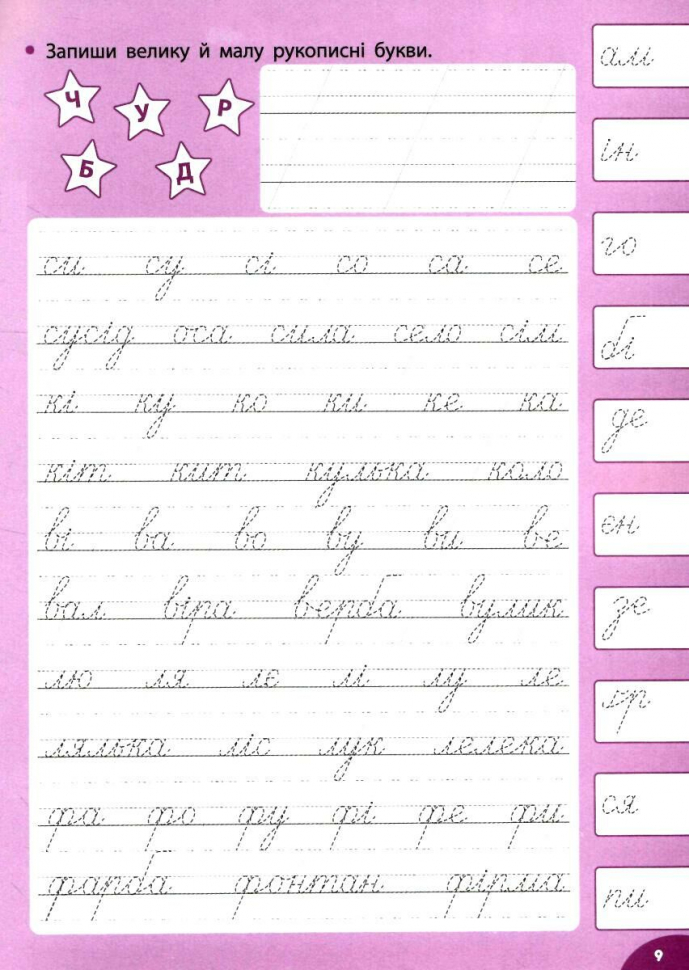 Запиши велику й малу рукописні букви.
Ч У Р
Б Д
си су сі со са се
сусід оса сила село сім
кі ку ко ки ке ка
кіт кит кулька коло
ві ва во ву ви ве
вал віра верба вулик
лю ля лє лі лу ле
лялька ліс лук лелека
фа фо фу фі фе фи
фарба фонтан фірма
ам
ін
го
бі
де
єн
зе
ьр
ся
пи
9